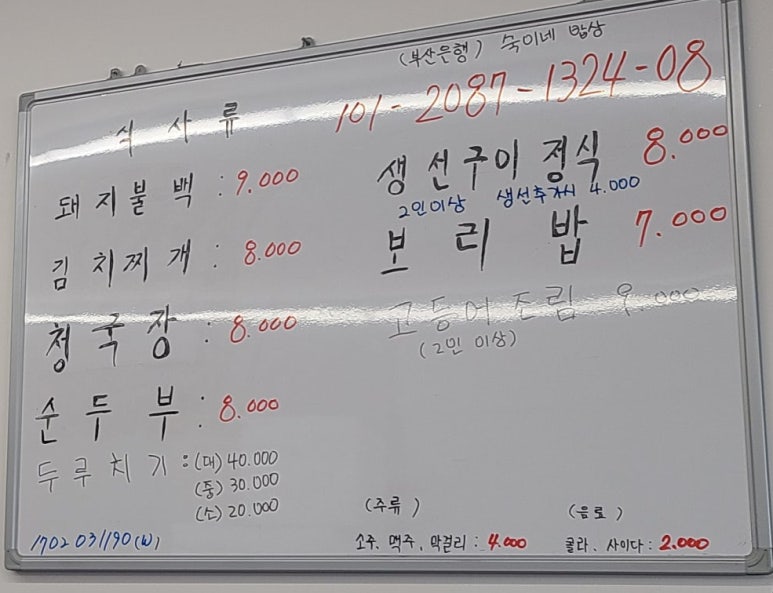 (부산은행) 숙이네 밥상
101-2087-1324-08
식 사 류
돼지불백 : 9.000
김치찌개 : 8.000
청국장 : 8.000
순두부 : 8.000
두루치기 : (대) 40.000
(중) 30.000
(소) 20.000
1702031190(W)
생선구이 정식 8.000
2인이상 생선추가시 4.000
보리밥 7.000
고등어조림 9.000
(2인 이상)
(주류)
소주. 맥주. 막걸리 : 4.000
(음료)
콜라. 사이다 : 2.000